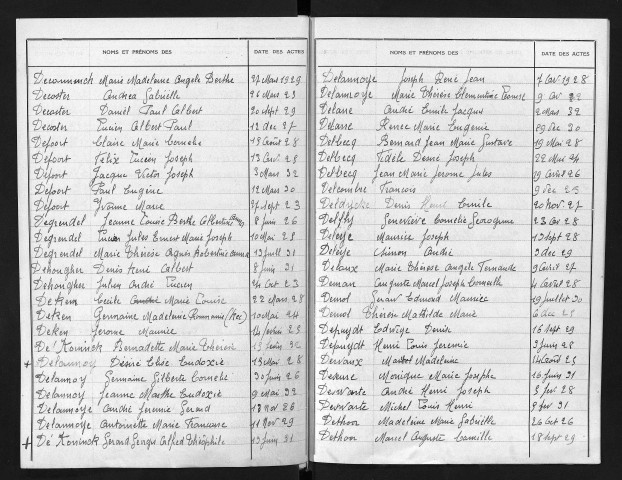 NOMS ET PRÉNOMS DES DATE DES ACTES
Deconninck Marie Madeleine Angèle Berthe 27 Mars 1929
Decoster Andrea Gabrielle 26 Mars 23
Decoster Daniel Paul Albert 20 sept 29
Decoster Lucien Albert Paul 12 dec 27
Defoort Claire Marie Cornelie 13 Août 28
Defoort Félix Lucien Joseph 13 Avr 28
Defoort Jacque Victor Joseph 3 Mars 32
Defoort Paul Eugène 12 Mars 30
Defoort Yvonne Marie 27 sept 23
Degrendel Jeanne Louise Berthe Albertine 8 juin 26
Degrendel Lucien Jules Ernest Marie Joseph 10 Mai 25
Degrendel Marie Thérèse Agnès 13 juill 31
Dehongher Denis René Albert 8 juin 31
Dehongher Julien André Lucien 24 Oct 23
Deken Cécile Marie Louise 22 Mars 28
Deken Germaine Madeleine 10 Mai 24
Deken Jerome Maurice 14 février 23
De Koninck Bernadette Marie Thérèse 13 juin 32
+ Delannoy Désiré Elise Eudoxie 13 Mai 28
Delannoy Germaine Gilberte Cornelie 30 juin 26
Delannoy Jeanne Marthe Eudoxie 9 Mai 32
Delannoye André Jeremie Gerard 18 Nov 26
Delannoye Antoinette Marie Francoise 11 Nov 29
+ De Koninck Gerard Georges Alfred Théophile 13 juin 31
NOMS ET PRÉNOMS DES DATE DES ACTES
Delannoye Joseph René Jean 7 Avr 1928
Delannoye Marie Thérèse Clementine Louise 9 Avr 22
Delare André Emile Jacques 2 Mars 32
Delare Renée Marie Eugenie 29 dec 30
Delbecq Bernard Jean Marie Gustave 19 Mai 28
Delbecq Fidèle Désiré Joseph 22 Mai 24
Delbecq Jean Marie Jerome Jules 19 Avril 26
Delcombre Francois 9 dec 25
Denis Emile 20 Nov 27
Delffly Geneviève Cornelie Georgine 23 Avr 28
Deloye Maurice Joseph 13 sept 28
Deloye Simon André 3 dec 29
Delaux Marie Thérèse Angèle Fernande 9 Avril 27
Deman Auguste Marcel Joseph Corneille 4 Avril 28
Demol Gerard Edmond Maurice 19 juillet 30
Demol Thérèse Mathilde Marie 6 dec 25
Depuydt Edwige Denise 16 sept 29
Depuydt Henri Louis Jeremie 3 juin 28
Dervaux Madeleine 14 Août 25
Deseure Monique Marie Josephe 16 juin 31
Deswarte André Henri Joseph 5 fev 28
Deswarte Michel Louis Henri 9 fev 31
Dethoor Madeleine Marie Gabrielle 26 Oct 26
Dethoor Marcel Auguste Camille 18 sept 29